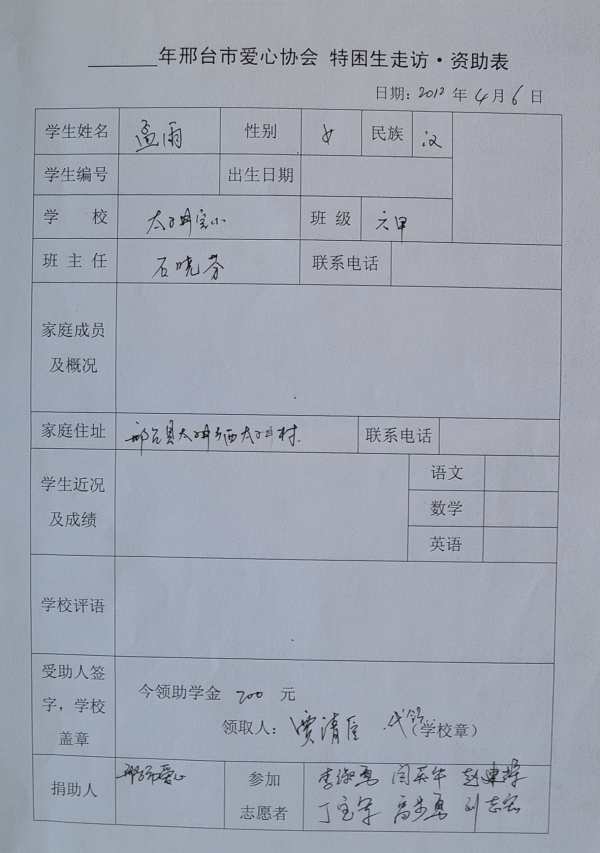 年邢台市爱心协会 特困生走访·资助表
日期: 2012 年 4 月 6 日
学生姓名 孟雨 性别 女 民族 汉
学生编号 出生日期
学 校 班 级 六甲
班 主 任 石晓芬 联系电话
家庭成员
及概况
家庭住址 邢台县太子井乡西太子井村 联系电话
学生近况
及成绩
语文
数学
英语
学校评语
受助人签
字，学校
盖章
今领助学金 200 元
领取人: 贾清臣 代领 (学校章)
捐助人 邢台市爱心
参加
志愿者
丁宝军 高步勇 刘志宏